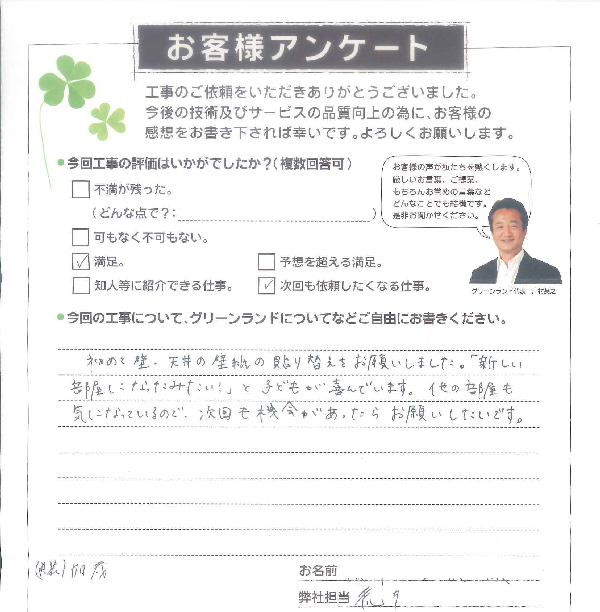 お客様アンケート
工事のご依頼をいただきありがとうございました。
今後の技術及びサービスの品質向上の為に、お客様の
感想をお書き下されば幸いです。よろしくお願いします。
●今回工事の評価はいかがでしたか？（複数回答可）
不満が残った。
（どんな点で？：　　　　　）
可もなく不可もない。
☑満足。　予想を超える満足。
知人等に紹介できる仕事。　☑次回も依頼したくなる仕事。
お客様の声が私たちを熱くします。
厳しいお言葉、ご提案、
もちろんお誉めの言葉など
どんなことでも結構です。
是非お聞かせください。
グリーンランド代表
●今回の工事について、グリーンランドについてなどご自由にお書きください。
初めて壁、天井の壁紙の貼り替えをお願いしました。「新しい
部屋になったみたい！」と子どもが喜んでいます。他の部屋も
気になっているので、次回も機会があったらお願いしたいです。
お名前
弊社担当